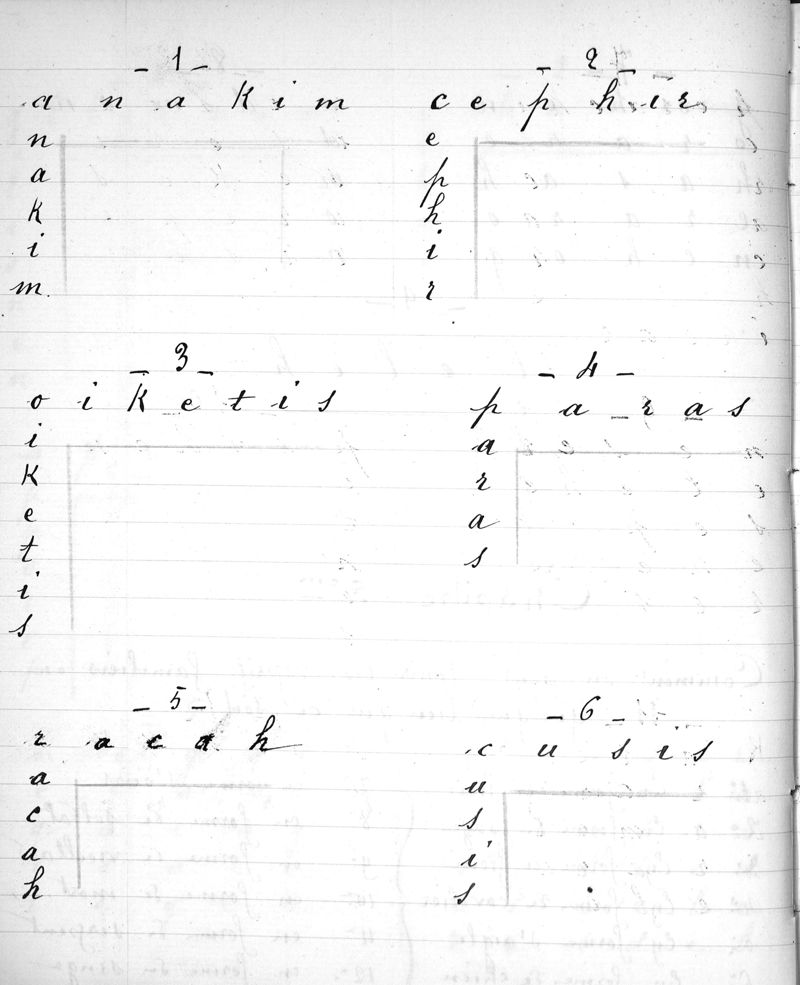 - 1 -
a n a k i m
n
a
k
i
m
- 2 -
c e p h i r
e
p
h
i
r
- 3 -
o i k e t i s
i
k
e
t
i
s
- 4 -
p a r a s
a
r
a
s
- 5 -
r a c a h
a
c
a
h
- 6 -
c u s i s
u
s
i
s